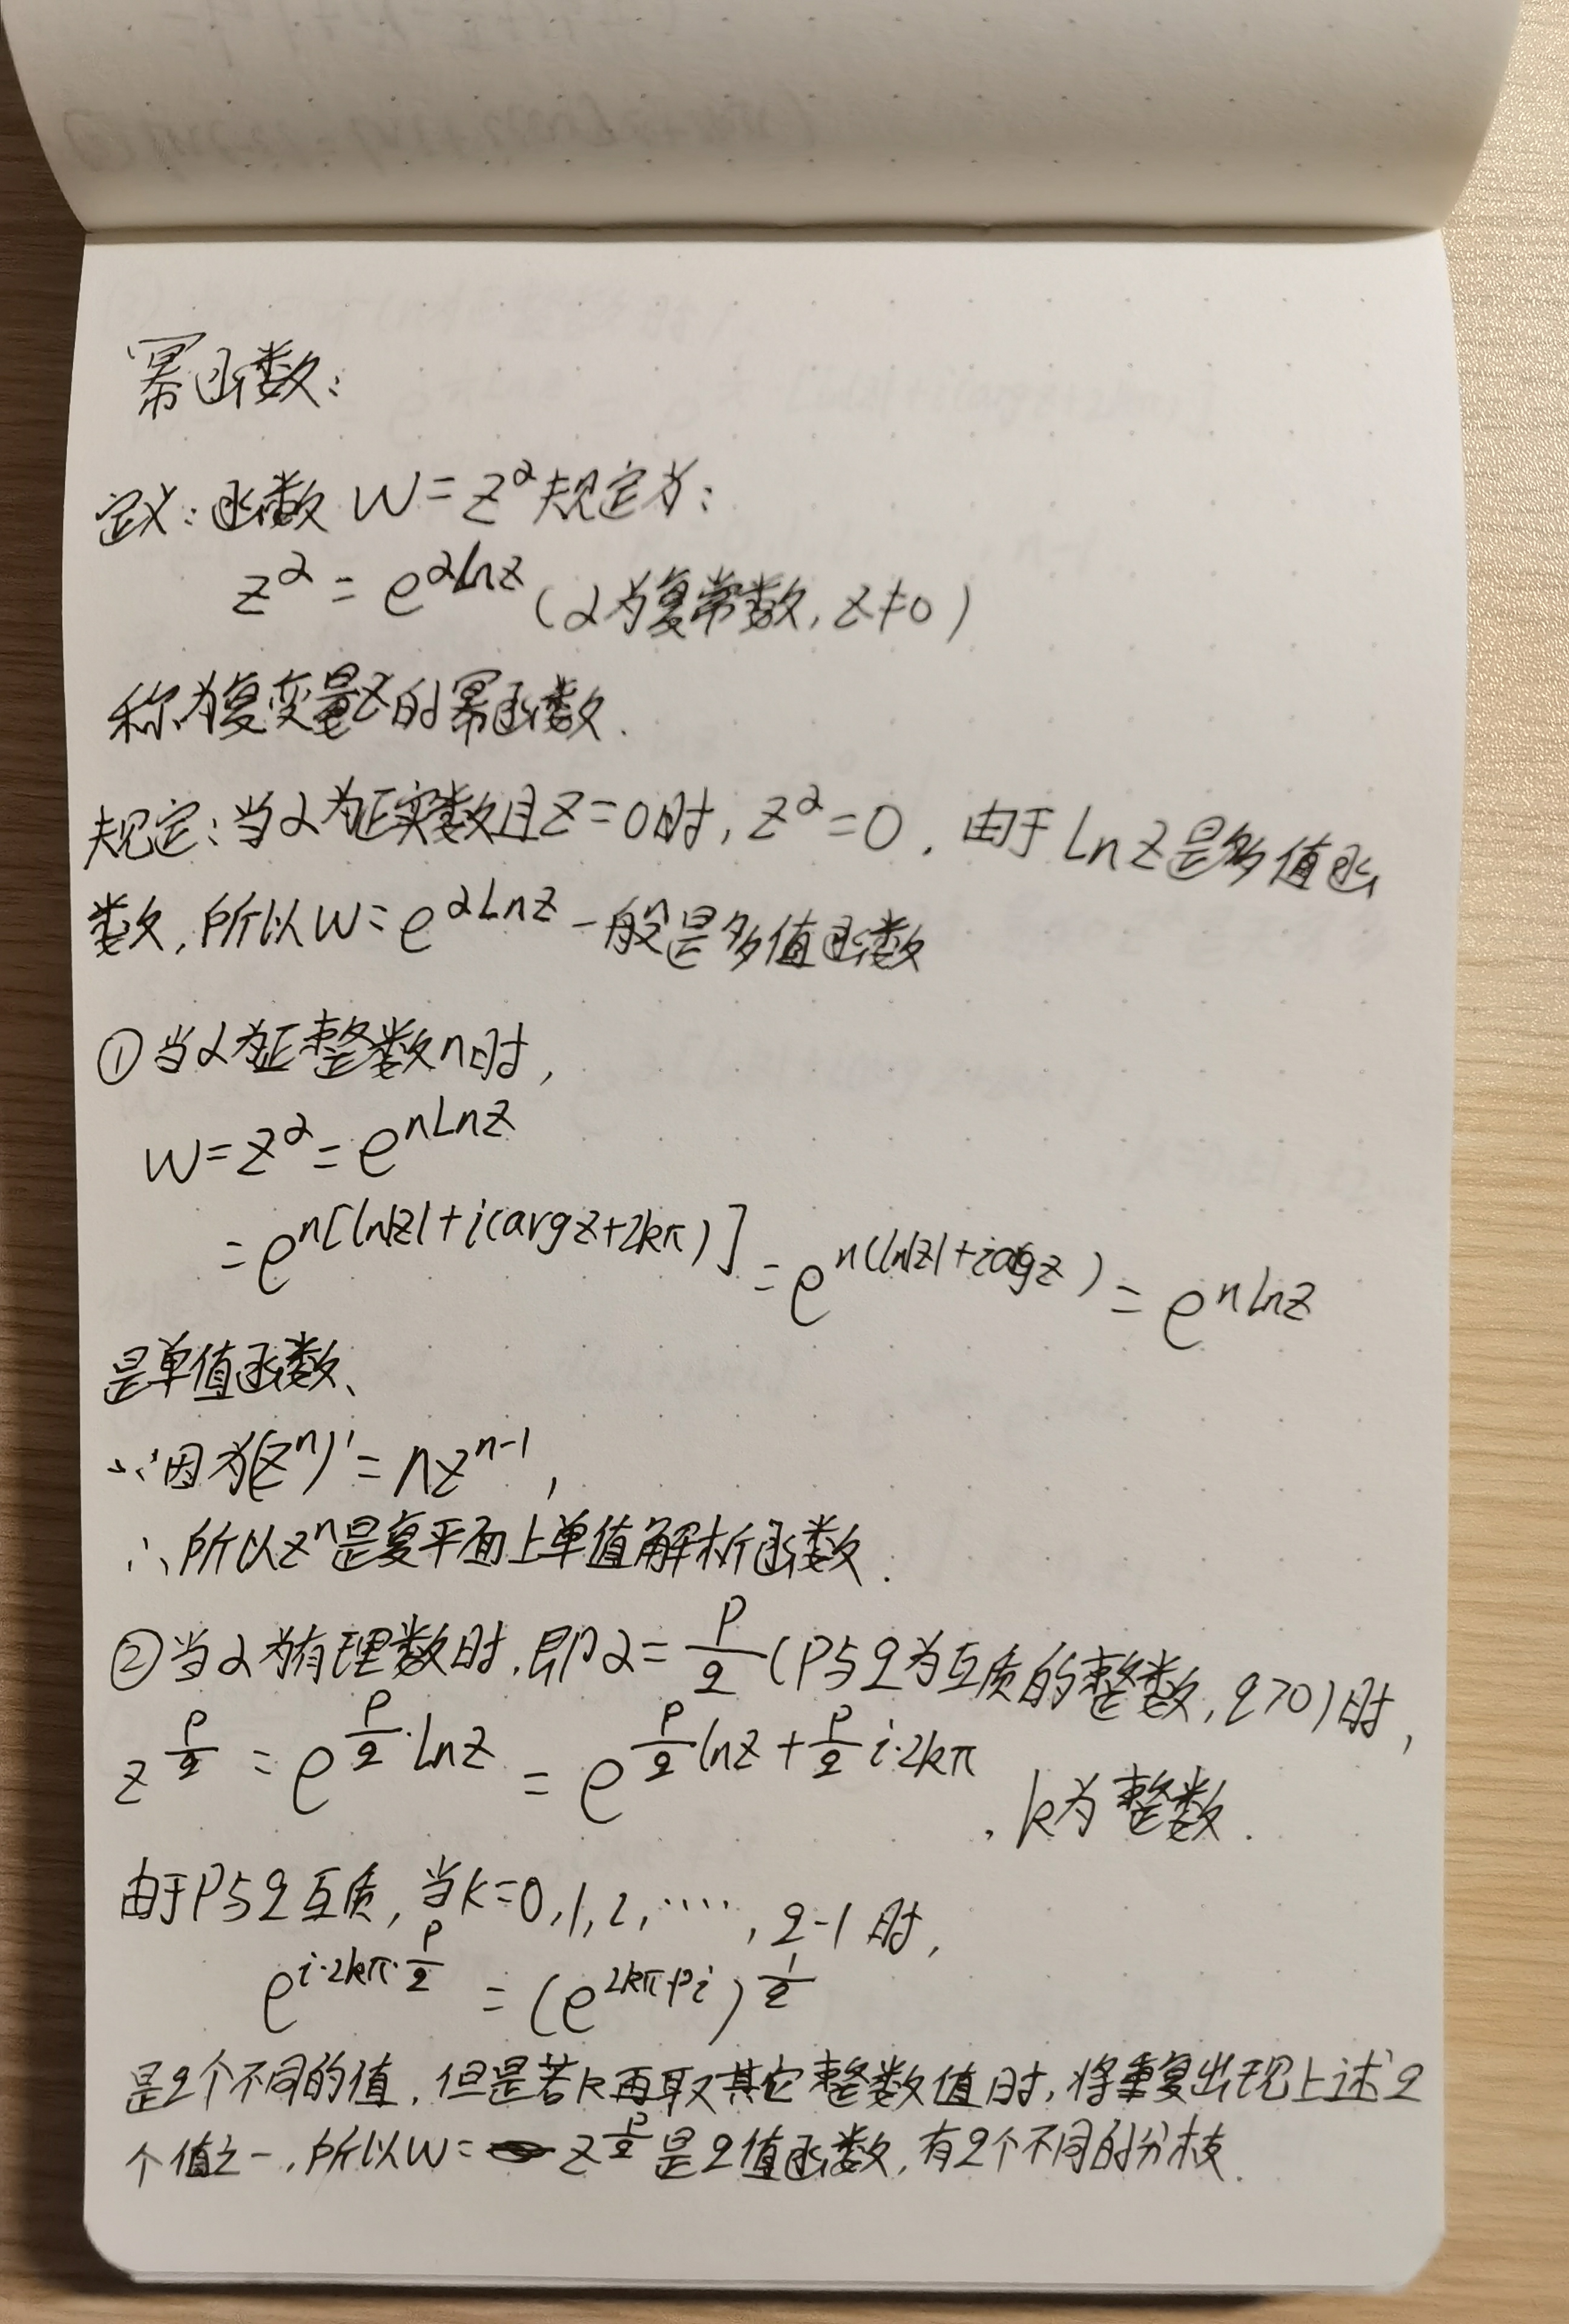 幂函数:
定义:函数 W=z^α 规定为:
z^α = e^{αLnz} (α为复常数, z≠0)
称为复变量z的幂函数.
规定:当α为正实数且z=0时, z^α=0. 由于 Ln z 是多值函
数, 所以W=e^{αLnz} 一般是多值函数
①当α为正整数n时,
w=z^α=e^{nLnz}
=e^{n[ln|z|+i(argz+2kπ)]} = e^{n(ln|z|+iargz)} = e^{nlnz}
是单值函数、
∵因为(z^n)'=nz^{n-1},
∴所以z^n是复平面上单值解析函数.
②当α为有理数时,即α=p/q (P与q为互质的整数, q>0)时,
z^{p/q} = e^{p/q·Lnz} = e^{p/q lnz + p/q i·2kπ}, k为整数.
由于P与q互质, 当k=0,1,2,……,q-1时,
e^{i·2kπ·p/q} = (e^{2kπpi})^{1/q}
是q个不同的值. 但是若k再取其它整数值时, 将重复出现上述q
个值之一. 所以w= z^{p/q} 是q值函数, 有q个不同的分枝.